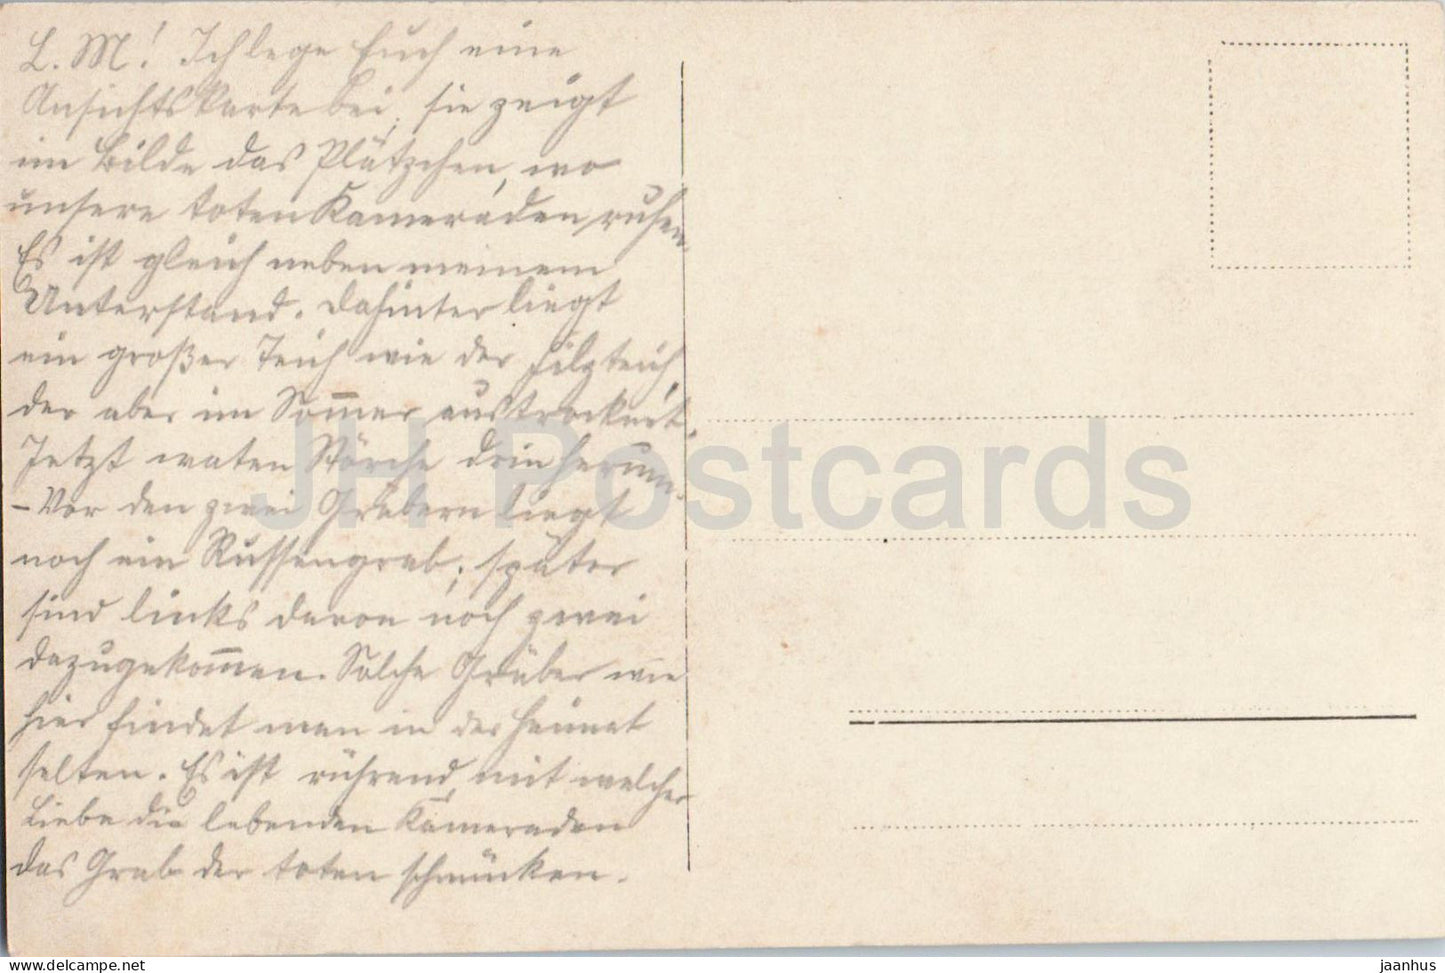 L. M! Ich lege Euch eine
Ansichtskarte bei, sie zeigt
im Bilde das Plätzchen, wo
unsere toten Kameraden ruhen.
Es ist gleich neben meinem
Unterstand. Dahinter liegt
ein großer Teich wie der Filzteich,
der aber im Sommer austrocknet.
Jetzt waten Störche drin herum.
– Vor den zwei Gräbern liegt
noch ein Russengrab; später
sind links davon noch zwei
dazugekommen. Solche Gräber wie
hier findet man in der Heimat
selten. Es ist rührend, mit welcher
Liebe die lebenden Kameraden
das Grab der toten schmücken.
JH Postcards
delcampe.net
jaanhus